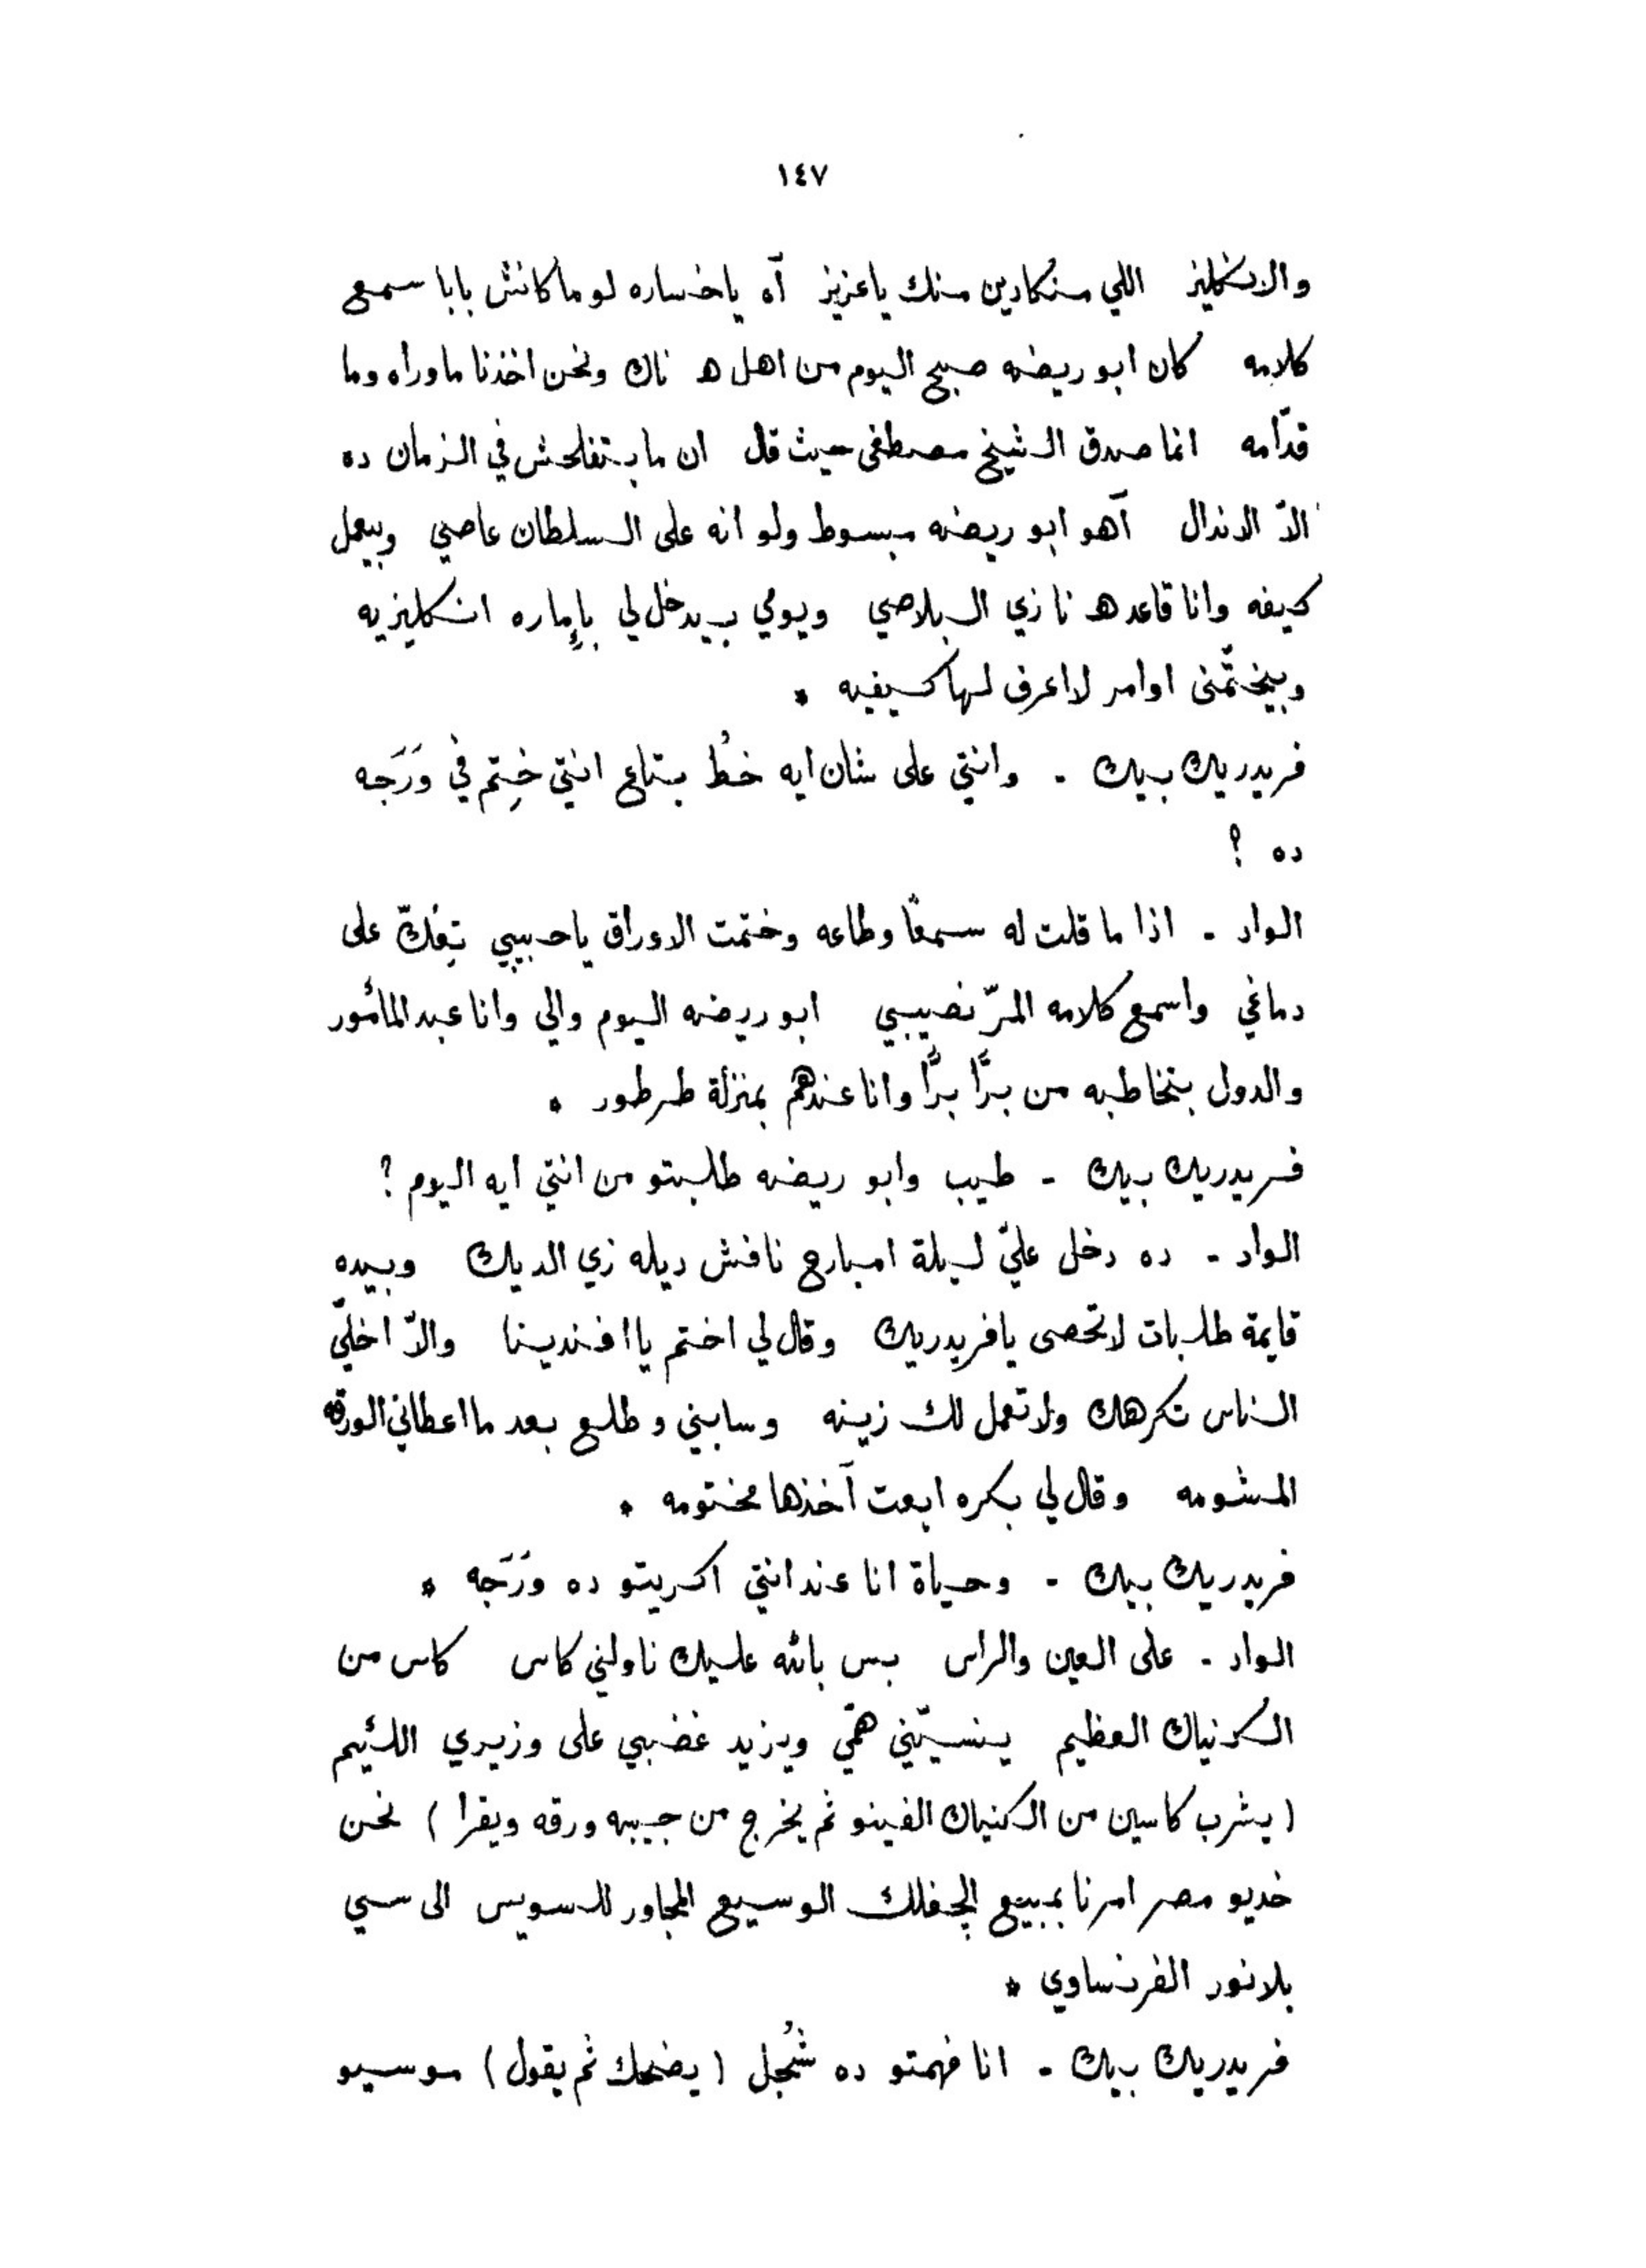 ١٤٧
والانكليز اللي منكادين منك ياعزيز آه ياخساره لوماكانش بابا سمع
كلامه كان ابو ريضه صبح اليوم من اهل هناك ونحن اخذنا ماوراه وما
قدّامه انما صدق الشيخ مصطفى حيث قال ان مابتفلحش في الزمان ده
الاّ الاندال آهو ابو ريضه مبسوط ولو انه على السلطان عاصي وبيعمل
كيفه وانا قاعد هنا زي البلاصي ويومي بيدخل لي بإماره انكليزيه
وبيختّمنى اوامر لااعرف لها كيفيه *
فريدريك بيك - وانتي على شان ايه خطُ بتاع انتي خِتم في وَرَجه
ده ؟
الواد - اذا ما قلت له سمعًا وطاعه وختمت الاوراق ياحبيبي تِفكّ على
دماغي واسمع كلامه المرّ نصيبي ابو ريضه اليوم والي وانا عبد المأمور
والدول بتخاطبه من برًّا برًّا وانا عندهم بمنزلة طرطور *
فريدريك بيك - طيب وابو ريضه طلبتو من انتي ايه اليوم ؟
الواد - ده دخل عليّ ليلة امبارح نافش ديله زي الديك وبيده
قايمة طلبات لاتحصى يافريدريك وقال لي اختم ياافندينا والاّ اخلّي
الناس تكرهك ولاتعمل لك زينه وسابني وطلع بعد مااعطاني الورقه
المشومه وقال لي بكره ابعت آخذها مختومه *
فريدريك بيك - وحياة انا عند انتي اكريتو ده وَرَجه *
الواد - على العين والراس بس بالله عليك ناولني كاس كاس من
الكونياك العظيم ينسيّني همّي ويزيد غضبي على وزيري اللئيم
( يشرب كاسين من الكنياك الفينو ثم يخرج من جيبه ورقه ويقرا ) نحن
خديو مصر امرنا بمبيع الچفلك الوسيع المجاور للسويس الى سي
بلانور الفرنساوي *
فريدريك بيك - انا فهمتو ده شُجل ( يضحك ثم يقول ) موسيو